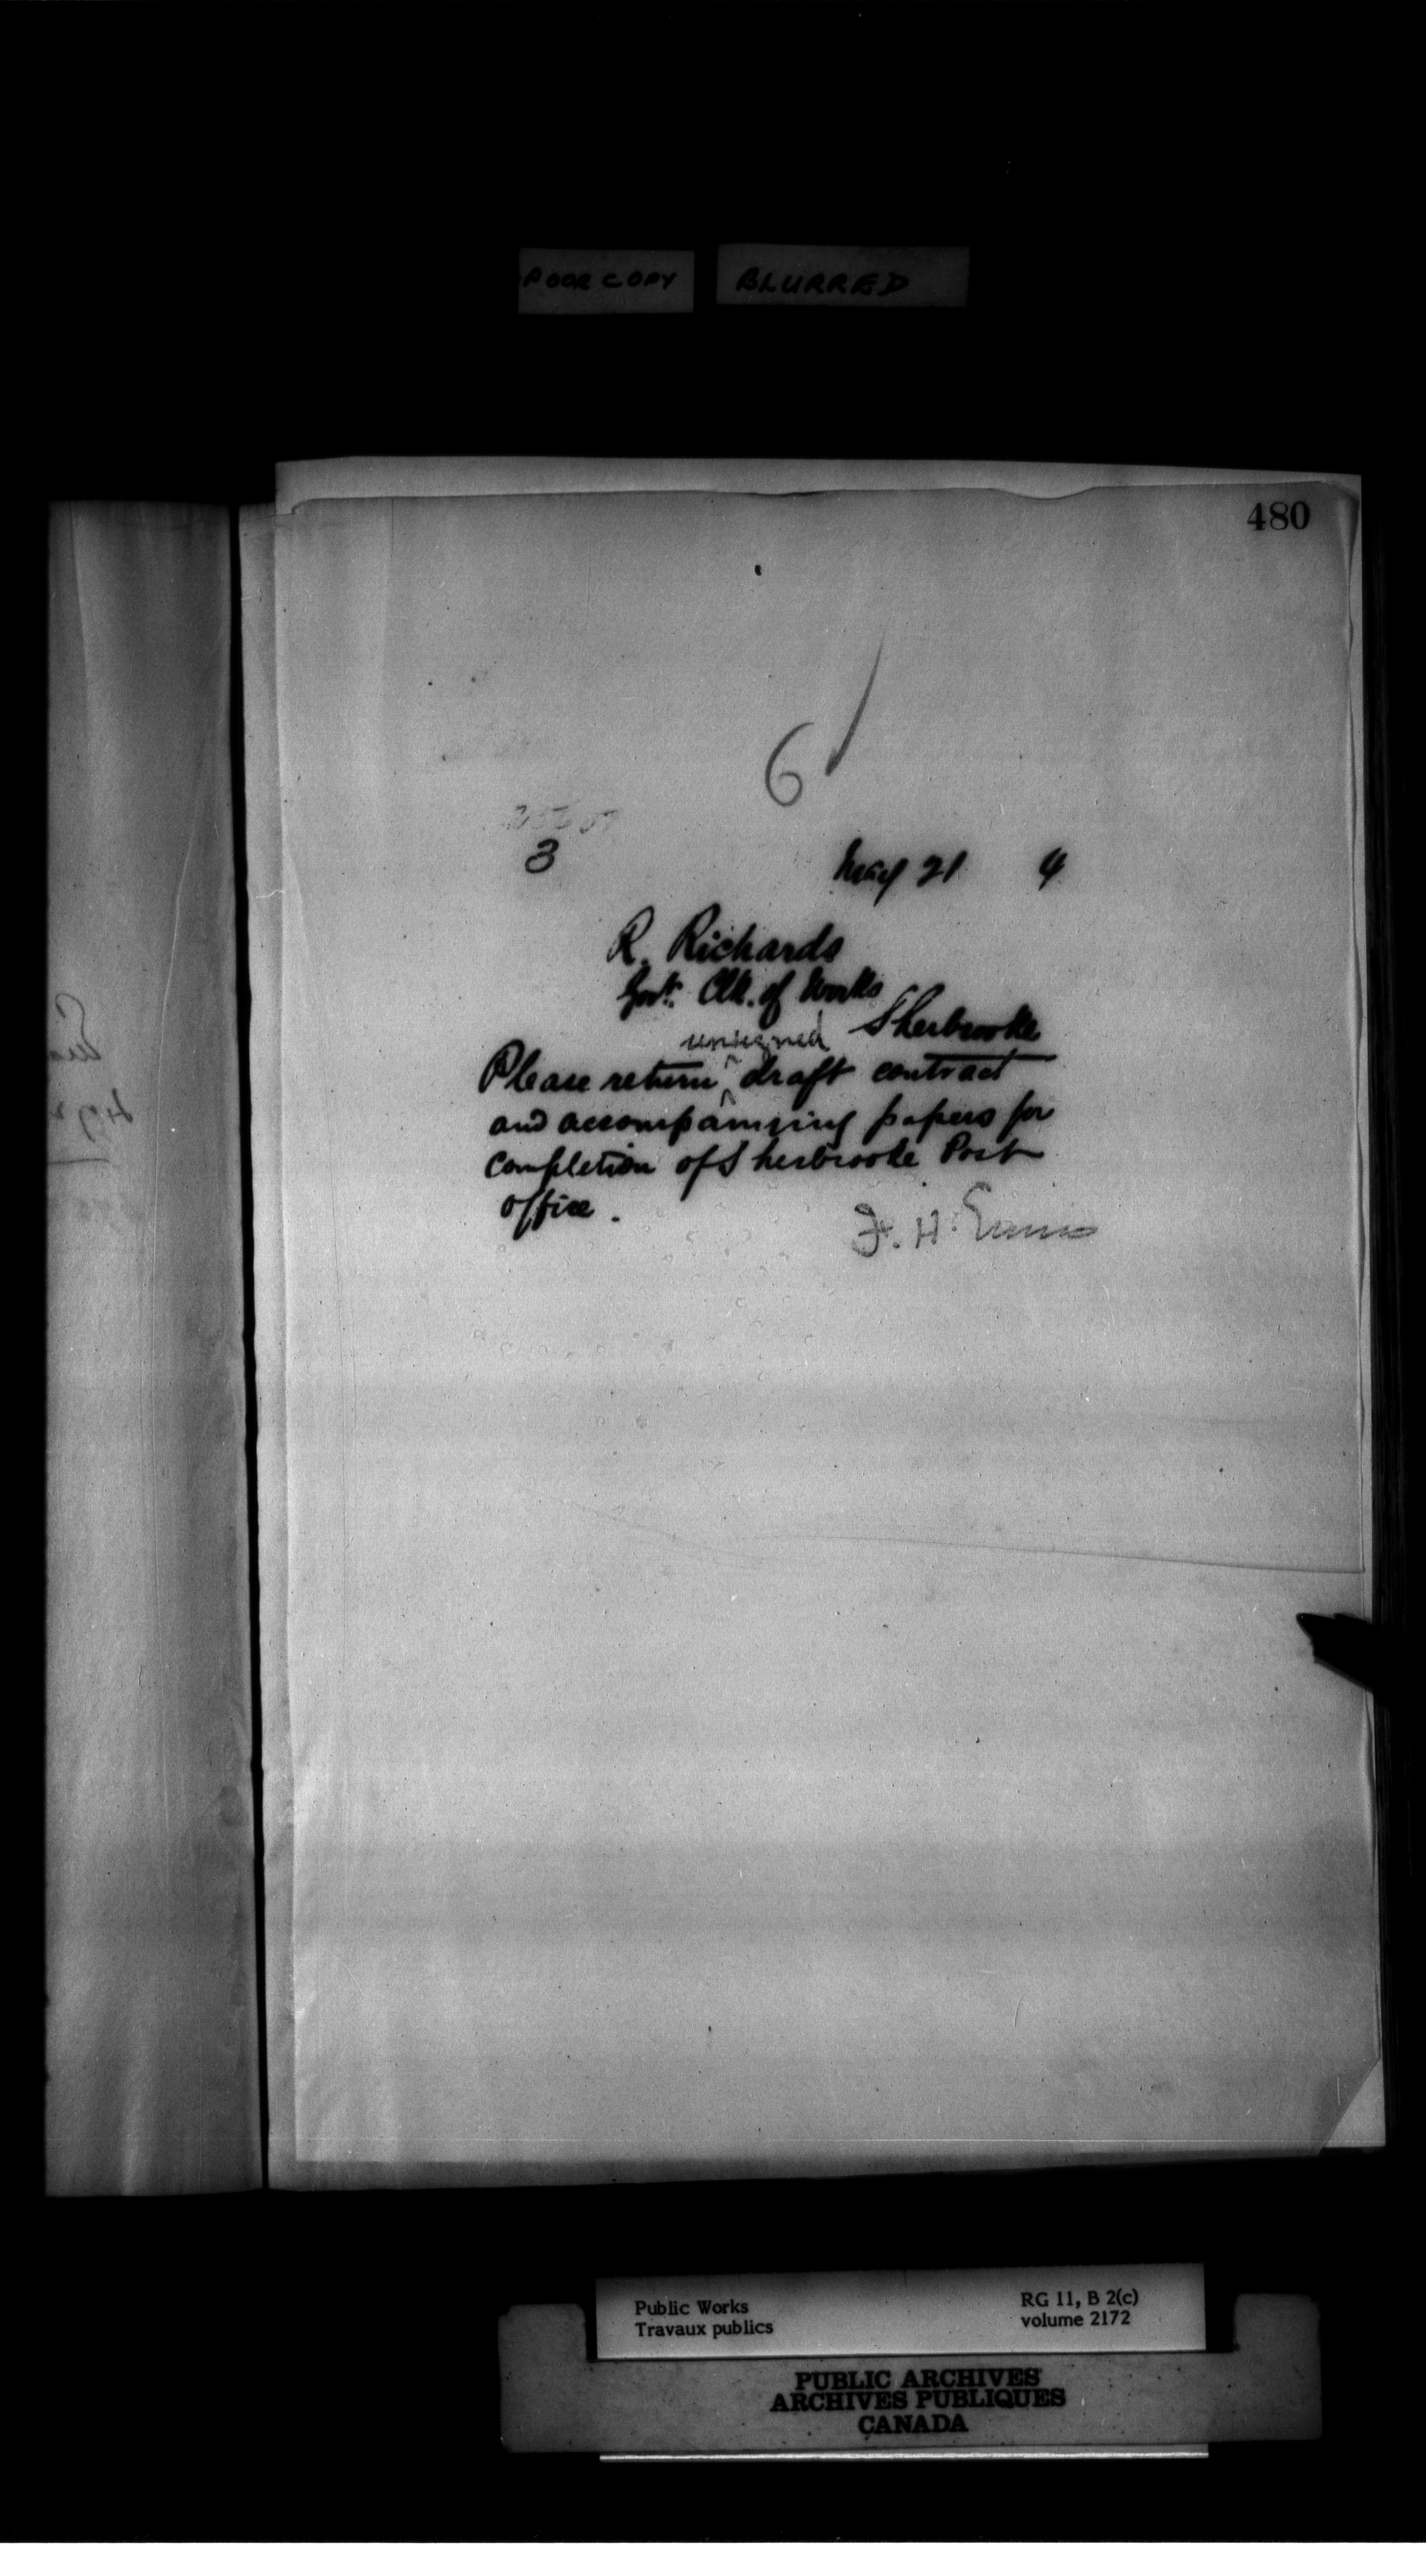 POOR COPY BLURRED
480
6
3 May 21 4
R. Richards
Govt. Clk. of Works
Sherbrooke
unsigned
Please return ^ draft contract
and accompanying papers for
completion of Sherbrooke Post
office.
F. H. Ennis
Public Works
Travaux publics
RG 11, B 2(c)
volume 2172
PUBLIC ARCHIVES
ARCHIVES PUBLIQUES
CANADA